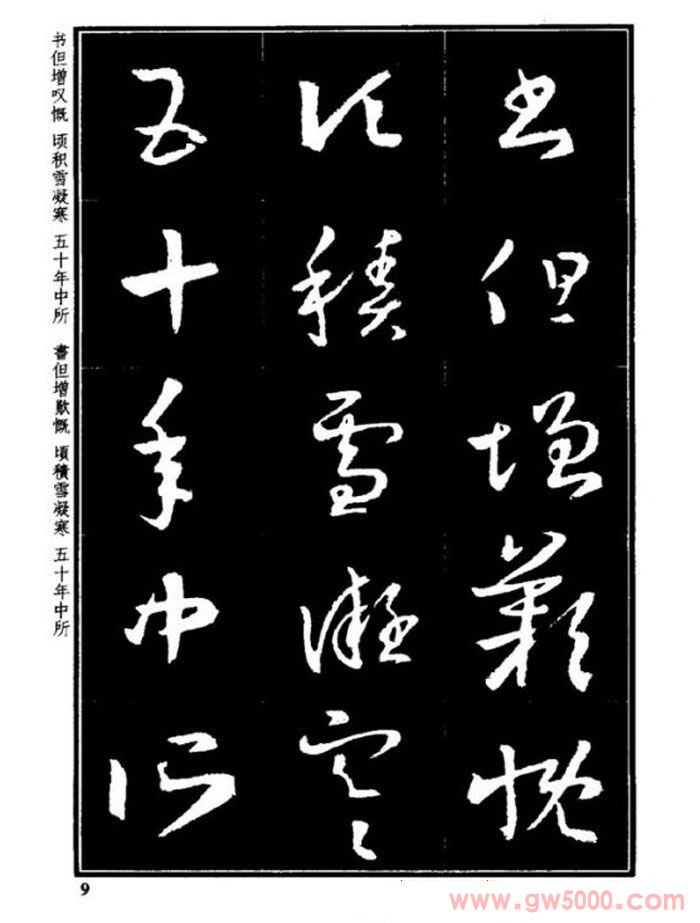 書但增歎慨
頃積雪凝寒
五十年中所
书但增叹慨 顷积雪凝寒 五十年中所 書但增歎慨 頃積雪凝寒 五十年中所
9
www.gw5000.com